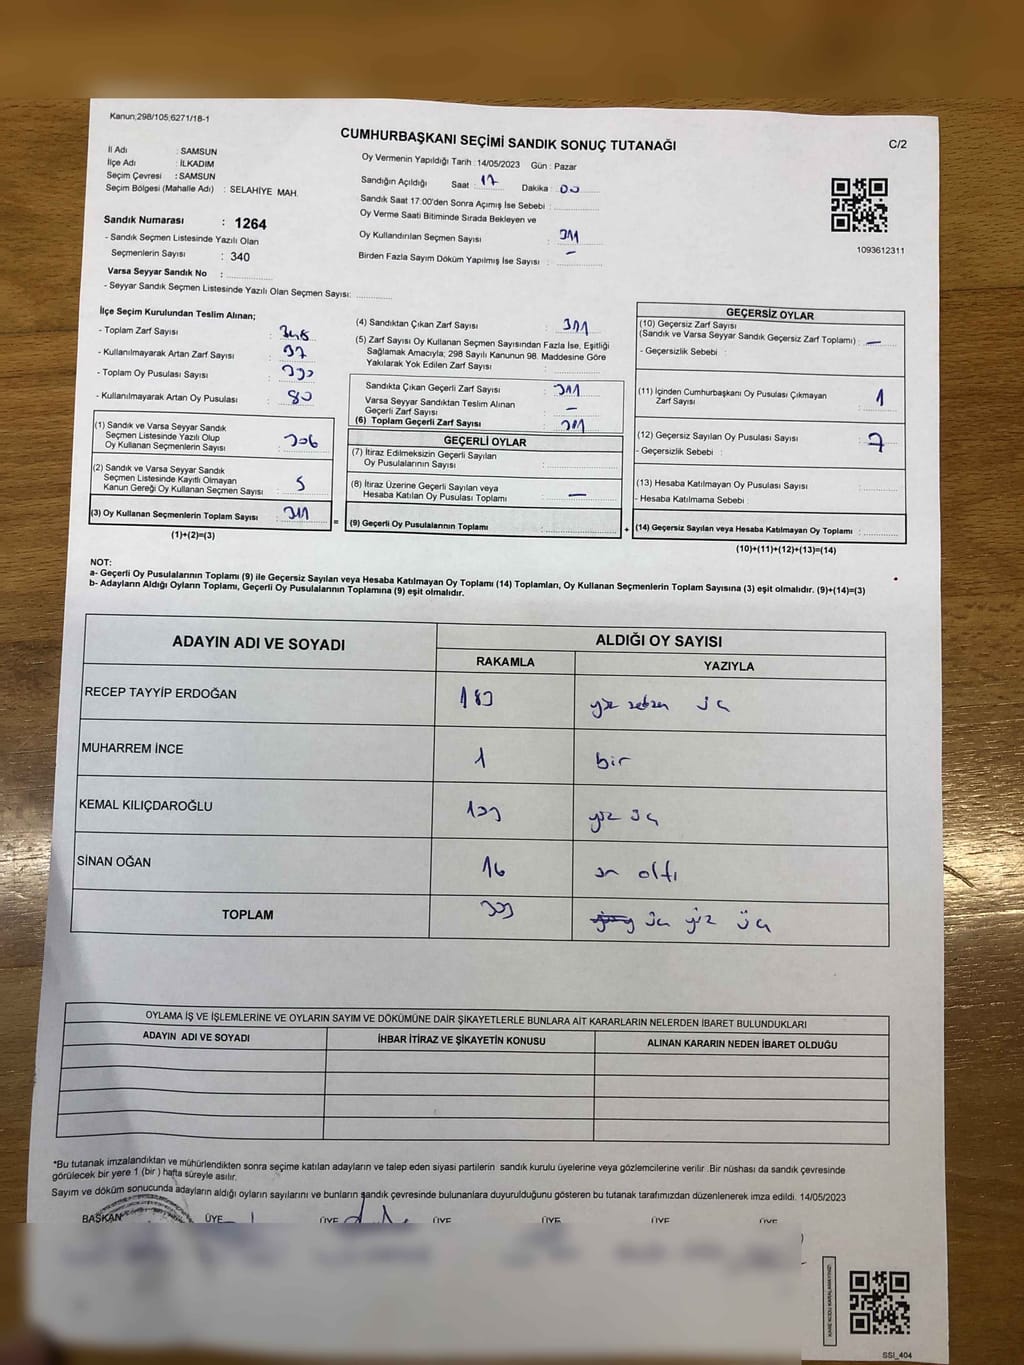 Kanun;298/105;6271/18-1
CUMHURBAŞKANI SEÇİMİ SANDIK SONUÇ TUTANAĞI
C/2
İl Adı : SAMSUN
İlçe Adı : İLKADIM
Seçim Çevresi : SAMSUN
Seçim Bölgesi (Mahalle Adı) : SELAHİYE MAH.
Sandık Numarası : 1264
- Sandık Seçmen Listesinde Yazılı Olan
Seçmenlerin Sayısı : 340
Varsa Seyyar Sandık No :
- Seyyar Sandık Seçmen Listesinde Yazılı Olan Seçmen Sayısı:
Oy Vermenin Yapıldığı Tarih : 14/05/2023 Gün : Pazar
Sandığın Açıldığı Saat : 17 Dakika : 00
Sandık Saat 17:00'den Sonra Açımış İse Sebebi :
Oy Verme Saati Bitiminde Sırada Bekleyen ve
Oy Kullandırılan Seçmen Sayısı : 311
Birden Fazla Sayım Döküm Yapılmış İse Sayısı : -
1093612311
İlçe Seçim Kurulundan Teslim Alınan;
- Toplam Zarf Sayısı :
- Kullanılmayarak Artan Zarf Sayısı :
- Toplam Oy Pusulası Sayısı :
- Kullanılmayarak Artan Oy Pusulası : 80
(1) Sandık ve Varsa Seyyar Sandık
Seçmen Listesinde Yazılı Olup
Oy Kullanan Seçmenlerin Sayısı : 306
(2) Sandık ve Varsa Seyyar Sandık
Seçmen Listesinde Kayıtlı Olmayan
Kanun Gereği Oy Kullanan Seçmen Sayısı : 5
(3) Oy Kullanan Seçmenlerin Toplam Sayısı : 311
(1)+(2)=(3)
(4) Sandıktan Çıkan Zarf Sayısı : 311
(5) Zarf Sayısı Oy Kullanan Seçmen Sayısından Fazla İse, Eşitliği
Sağlamak Amacıyla; 298 Sayılı Kanunun 98. Maddesine Göre
Yakılarak Yok Edilen Zarf Sayısı :
Sandıkta Çıkan Geçerli Zarf Sayısı : 311
Varsa Seyyar Sandıktan Teslim Alınan
Geçerli Zarf Sayısı : -
(6) Toplam Geçerli Zarf Sayısı : 311
GEÇERLİ OYLAR
(7) İtiraz Edilmeksizin Geçerli Sayılan
Oy Pusulalarının Sayısı :
(8) İtiraz Üzerine Geçerli Sayılan veya
Hesaba Katılan Oy Pusulası Toplamı : -
= (9) Geçerli Oy Pusulalarının Toplamı :
GEÇERSİZ OYLAR
(10) Geçersiz Zarf Sayısı
(Sandık ve Varsa Seyyar Sandık Geçersiz Zarf Toplamı) : -
- Geçersizlik Sebebi :
(11) İçinden Cumhurbaşkanı Oy Pusulası Çıkmayan
Zarf Sayısı : 1
(12) Geçersiz Sayılan Oy Pusulası Sayısı : 7
- Geçersizlik Sebebi :
(13) Hesaba Katılmayan Oy Pusulası Sayısı :
- Hesaba Katılmama Sebebi :
+ (14) Geçersiz Sayılan veya Hesaba Katılmayan Oy Toplamı :
(10)+(11)+(12)+(13)=(14)
NOT:
a- Geçerli Oy Pusulalarının Toplamı (9) ile Geçersiz Sayılan veya Hesaba Katılmayan Oy Toplamı (14) Toplamları, Oy Kullanan Seçmenlerin Toplam Sayısına (3) eşit olmalıdır. (9)+(14)=(3)
b- Adayların Aldığı Oyların Toplamı, Geçerli Oy Pusulalarının Toplamına (9) eşit olmalıdır.
ADAYIN ADI VE SOYADI
ALDIĞI OY SAYISI
RAKAMLA YAZIYLA
RECEP TAYYİP ERDOĞAN 183 yüz seksen üç
MUHARREM İNCE 1 bir
KEMAL KILIÇDAROĞLU 103 yüz üç
SİNAN OĞAN 16 on altı
TOPLAM 303 üç yüz üç
OYLAMA İŞ VE İŞLEMLERİNE VE OYLARIN SAYIM VE DÖKÜMÜNE DAİR ŞİKAYETLERLE BUNLARA AİT KARARLARIN NELERDEN İBARET BULUNDUKLARI
ADAYIN ADI VE SOYADI İHBAR İTİRAZ VE ŞİKAYETİN KONUSU ALINAN KARARIN NEDEN İBARET OLDUĞU
*Bu tutanak imzalandıktan ve mühürlendikten sonra seçime katılan adayların ve talep eden siyasi partilerin sandık kurulu üyelerine veya gözlemcilerine verilir .Bir nüshası da sandık çevresinde
görülecek bir yere 1 (bir ) hafta süreyle asılır.
Sayım ve döküm sonucunda adayların aldığı oyların sayılarını ve bunların sandık çevresinde bulunanlara duyurulduğunu gösteren bu tutanak tarafımızdan düzenlenerek imza edildi. 14/05/2023
BAŞKAN ÜYE ÜYE ÜYE ÜYE ÜYE ÜYE
KARE KODU KARALAMAYINIZ!
SSI_404